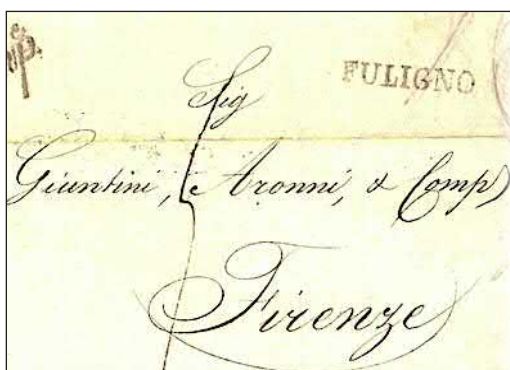 FULIGNO
Sig
Giuntini, Aronni, & Comp
Firenze